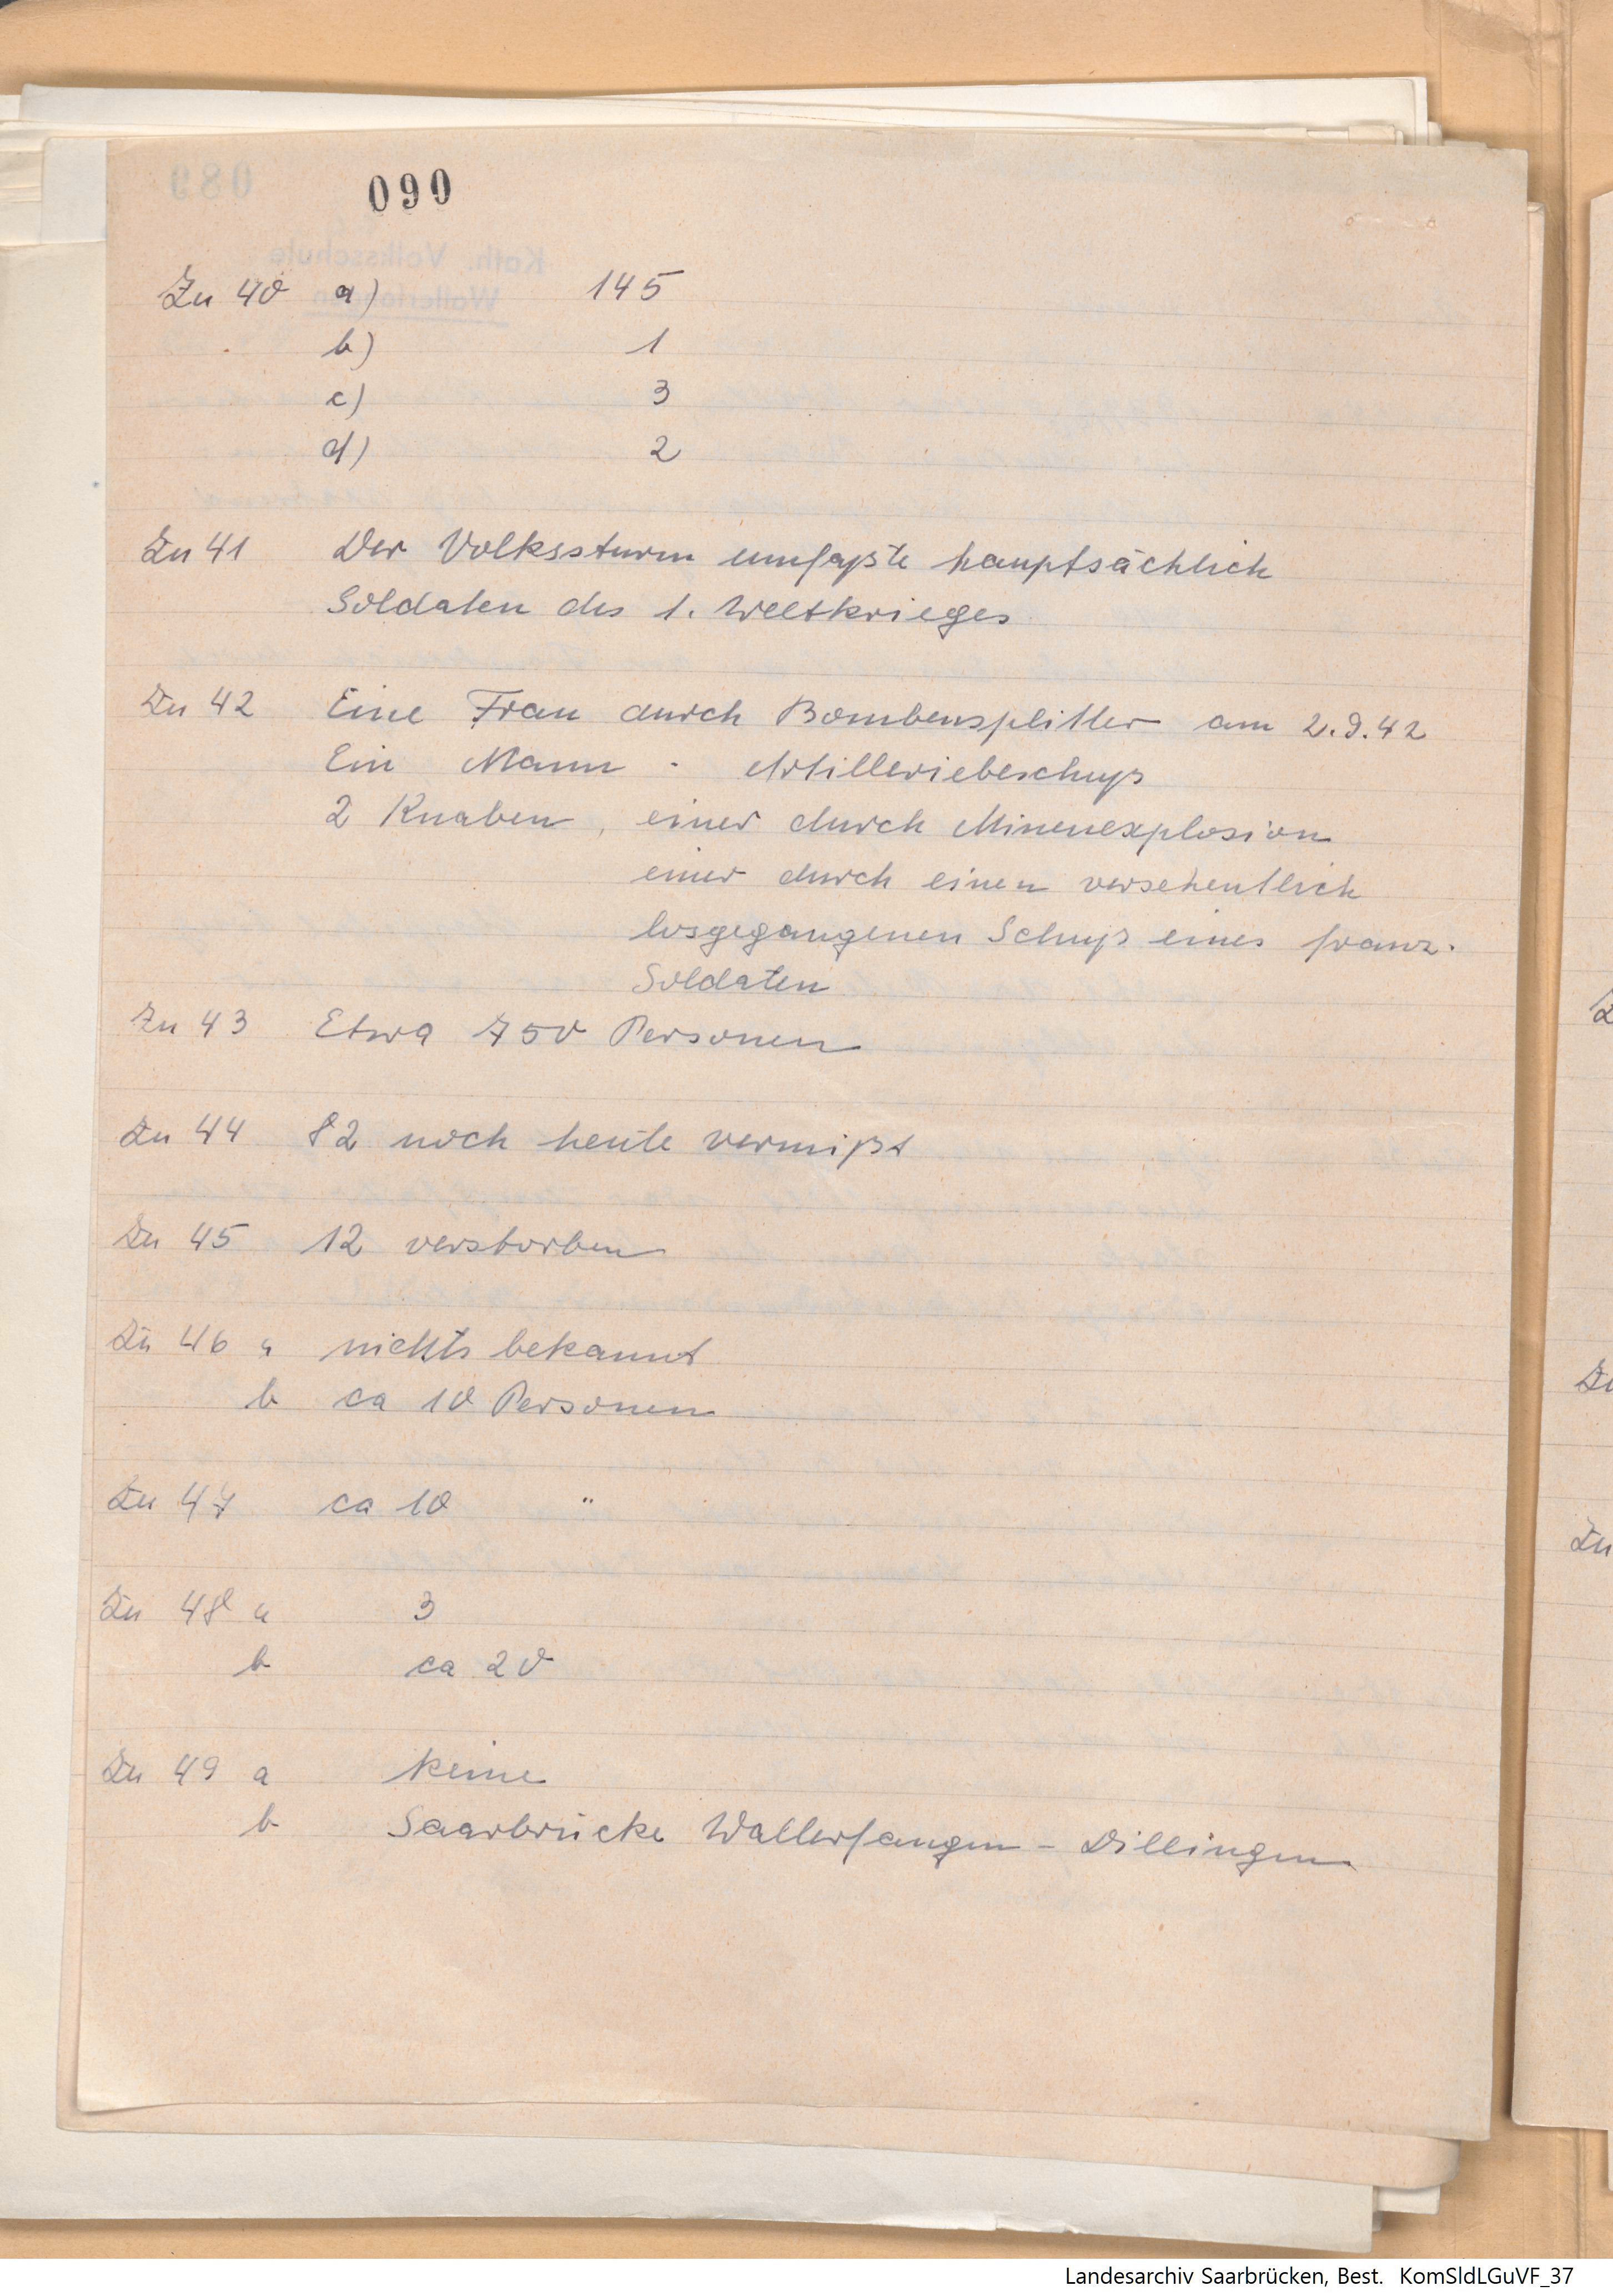 090
Zu 40 a) 145
b) 1
c) 3
d) 2
Zu 41 Der Volkssturm umfaßte hauptsächlich
Soldaten des 1. Weltkrieges
Zu 42 Eine Frau durch Bombensplitter am 2.9.42
Ein Mann " Artilleriebeschuß
2 Knaben, einer durch Minenexplosion
einer durch einen versehentlich
losgegangenen Schuß eines franz.
Soldaten
Zu 43 Etwa 750 Personen
Zu 44 82 noch heute vermißt
Zu 45 12 verstorben
Zu 46 a nichts bekannt
b ca 10 Personen
Zu 47 ca 10 "
Zu 48 a 3
b ca 20
Zu 49 a keine
b Saarbrücke Wallerfangen - Dillingen
Landesarchiv Saarbrücken, Best. KomSldLGuVF_37